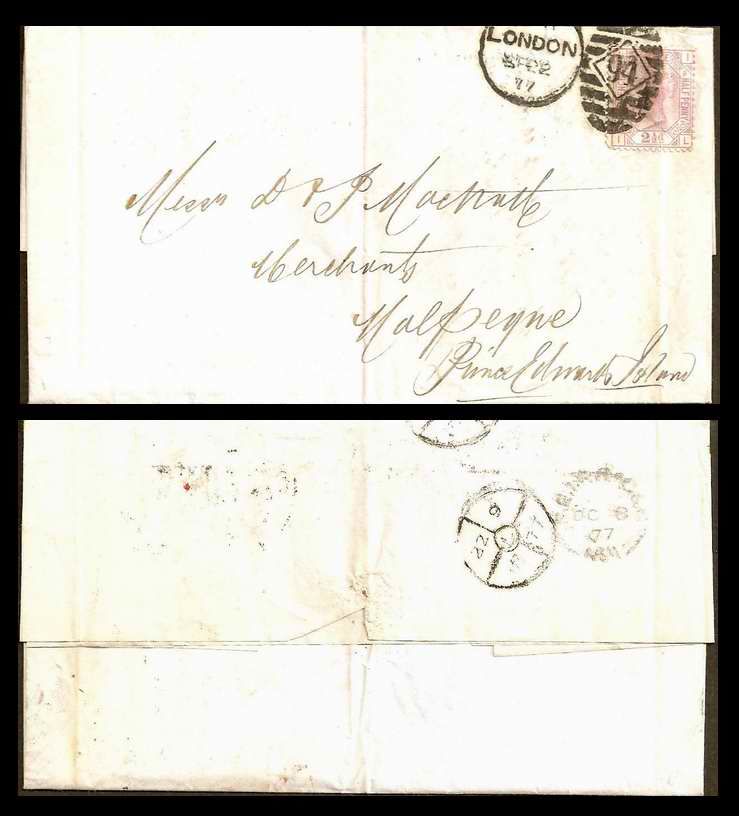 LONDON
SP 22
77
94
HALF PENNY
I 2½d L
Messrs D & P
Merchants
Malpeque
Prince Edwards Island
9
22
77
OC 8
77
AM